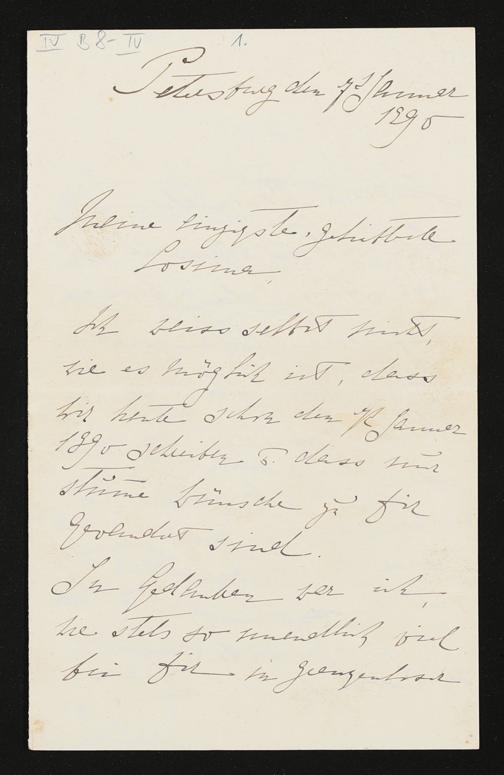 IV B 8-IV 1.
Petersburg den 7t Januar
1890
Meine einzigste, geliebteste
Cosima,
Ich weiss selbst nicht,
wie es möglich ist, dass
wir heute schon den 7t Januar
1890 schreiben u. dass nur
stumme Wünsche zu Dir
gesendet sind.
In Gedanken war ich,
wie stets so unendlich viel
bei Dir in grenzenloser